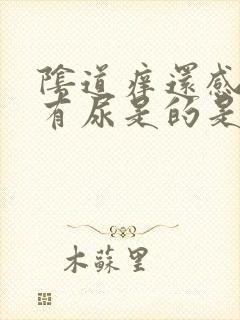 陰道痒還感
有尿是的是
木蘇里